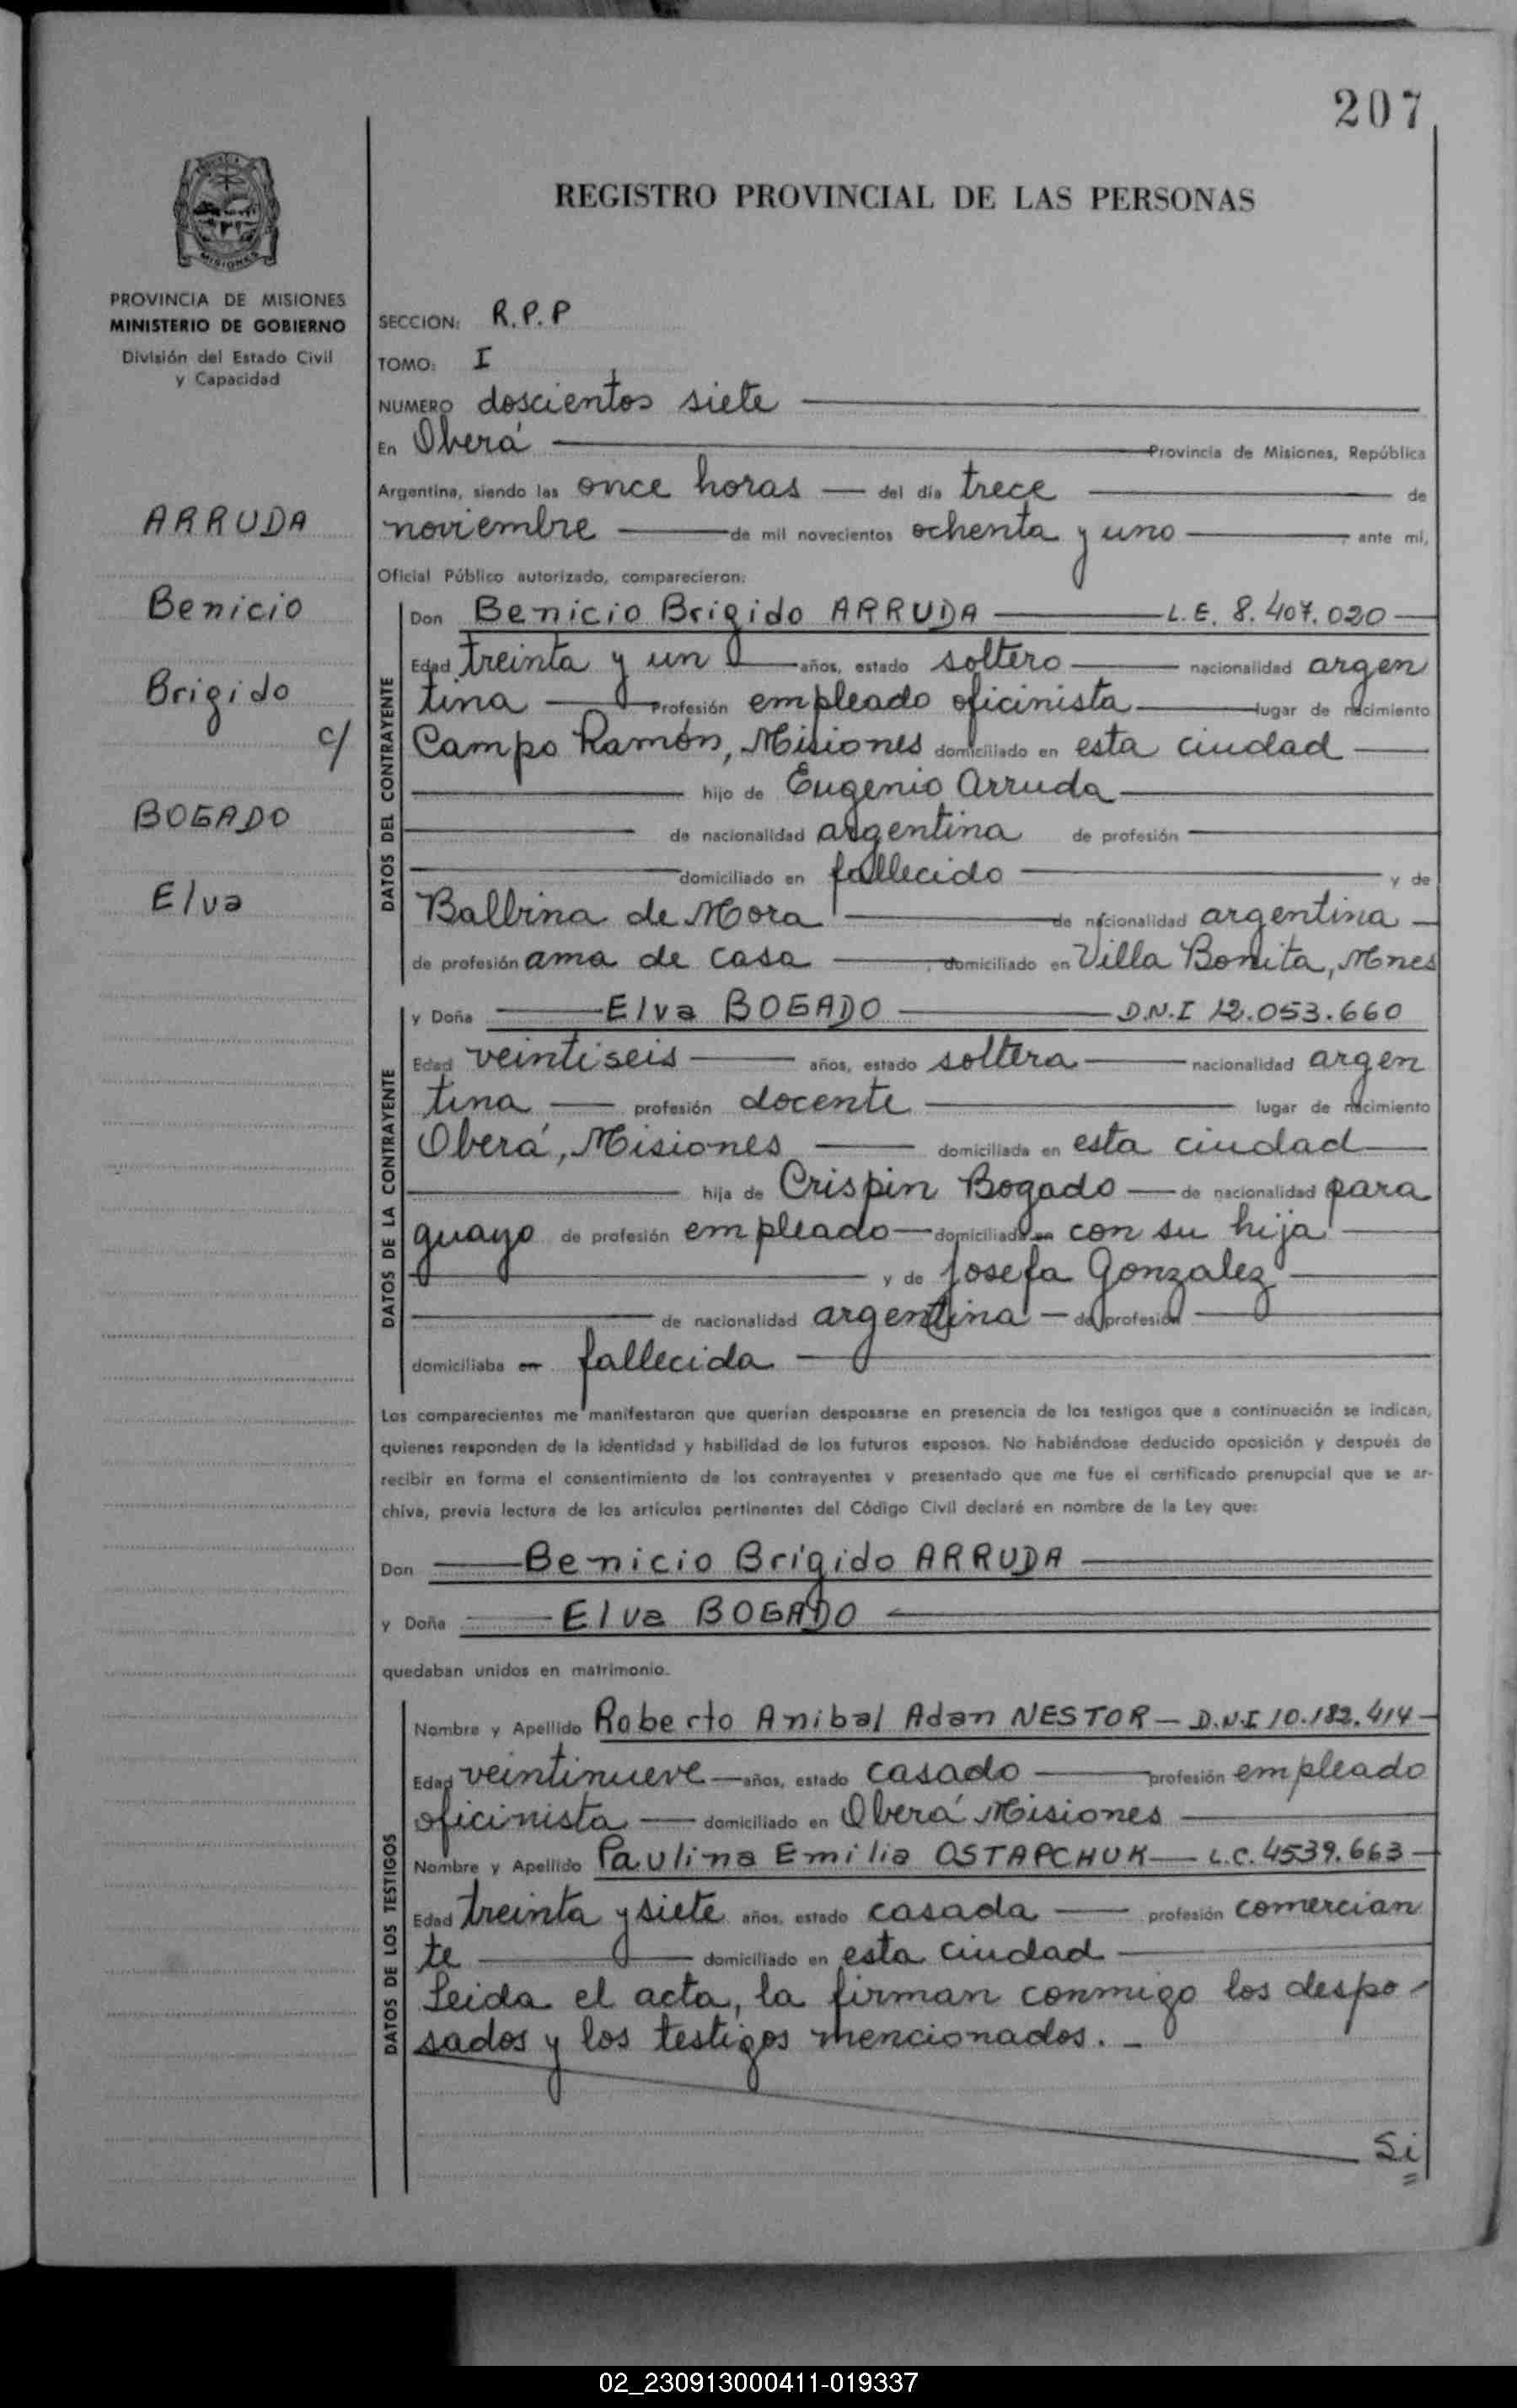 207
REGISTRO PROVINCIAL DE LAS PERSONAS
MISIONES
PROVINCIA DE MISIONES
MINISTERIO DE GOBIERNO
División del Estado Civil
y Capacidad
ARRUDA
Benicio
Brigido
c/
BOGADO
Elva
SECCION: R.P.P
TOMO: I
NUMERO doscientos siete
En Oberá Provincia de Misiones, República
Argentina, siendo las once horas — del día trece de
noviembre de mil novecientos ochenta y uno , ante mí,
Oficial Público autorizado, comparecieron:
DATOS DEL CONTRAYENTE
Don Benicio Brigido ARRUDA L.E. 8.407.020
Edad treinta y un años, estado soltero nacionalidad argen
tina Profesión empleado oficinista lugar de nacimiento
Campo Ramón, Misiones domiciliado en esta ciudad
hijo de Eugenio Arruda
de nacionalidad argentina de profesión
domiciliado en fallecido y de
Balbina de Mora de nacionalidad argentina
de profesión ama de casa , domiciliado en Villa Bonita, Mnes
DATOS DE LA CONTRAYENTE
y Doña Elva BOGADO D.N.I 12.053.660
Edad veintiseis años, estado soltera nacionalidad argen
tina profesión docente lugar de nacimiento
Oberá, Misiones domiciliada en esta ciudad
hija de Crispin Bogado de nacionalidad para
guayo de profesión empleado domiciliado en con su hija
y de Josefa Gonzalez
de nacionalidad argentina de profesión
domiciliaba en fallecida
Los comparecientes me manifestaron que querían desposarse en presencia de los testigos que a continuación se indican,
quienes responden de la identidad y habilidad de los futuros esposos. No habiéndose deducido oposición y después de
recibir en forma el consentimiento de los contrayentes y presentado que me fue el certificado prenupcial que se ar-
chiva, previa lectura de los artículos pertinentes del Código Civil declaré en nombre de la Ley que:
Don Benicio Brígido ARRUDA
y Doña Elva BOGADO
quedaban unidos en matrimonio.
DATOS DE LOS TESTIGOS
Nombre y Apellido Roberto Anibal Adan NESTOR — D.N.I 10.182.414
Edad veintinueve años, estado casado profesión empleado
oficinista domiciliado en Oberá Misiones
Nombre y Apellido Paulina Emilia OSTAPCHUK — L.C. 4539.663
Edad treinta y siete años, estado casada profesión comercian
te domiciliado en esta ciudad
Leida el acta, la firman conmigo los despo-
sados y los testigos mencionados. -
Si
02_230913000411-019337